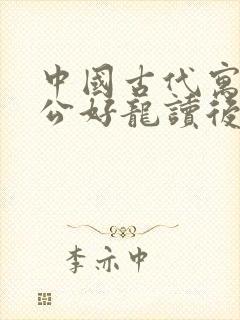 中國古代寓
公好龍讀後
李亦中